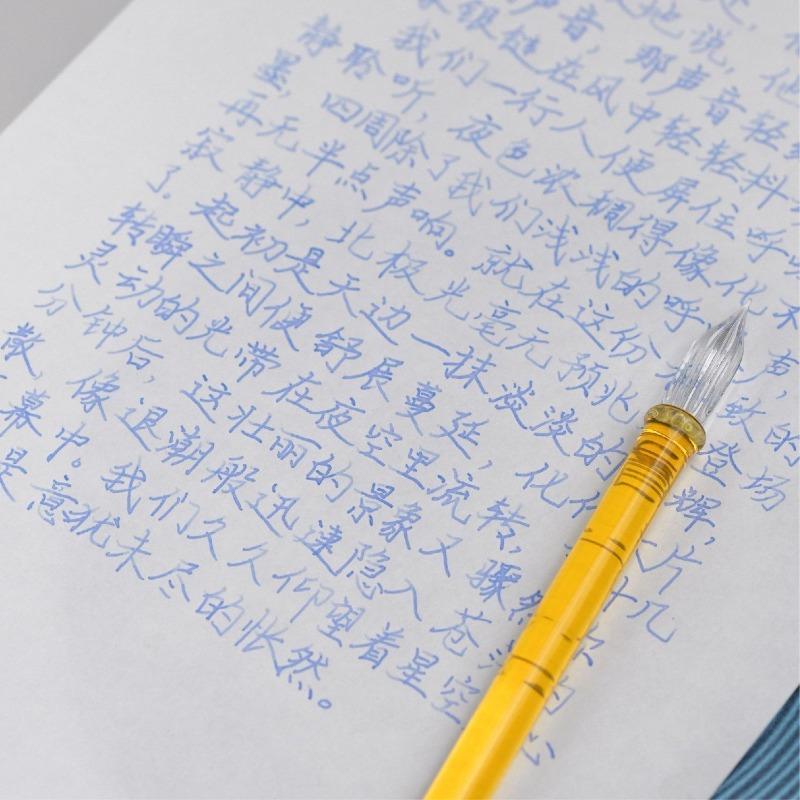 处，
地说，他
声音，那声音轻
银链在风中轻轻抖
我们一行人便屏住呼
静聆听，夜色浓稠得像化不
墨，四周除了我们浅浅的呼声，
再无半点声响。就在这份致的
寂静中，北极光毫无预兆登场
了。起初是天边一抹淡淡的辉，
转瞬之间便舒展蔓延，化片
灵动的光带在夜空里流转，十几
分钟后，这壮丽的景象又骤然
散，像退潮般迅速隐入苍的
幕中。我们久久仰望着星空心
是意犹未尽的怅然。